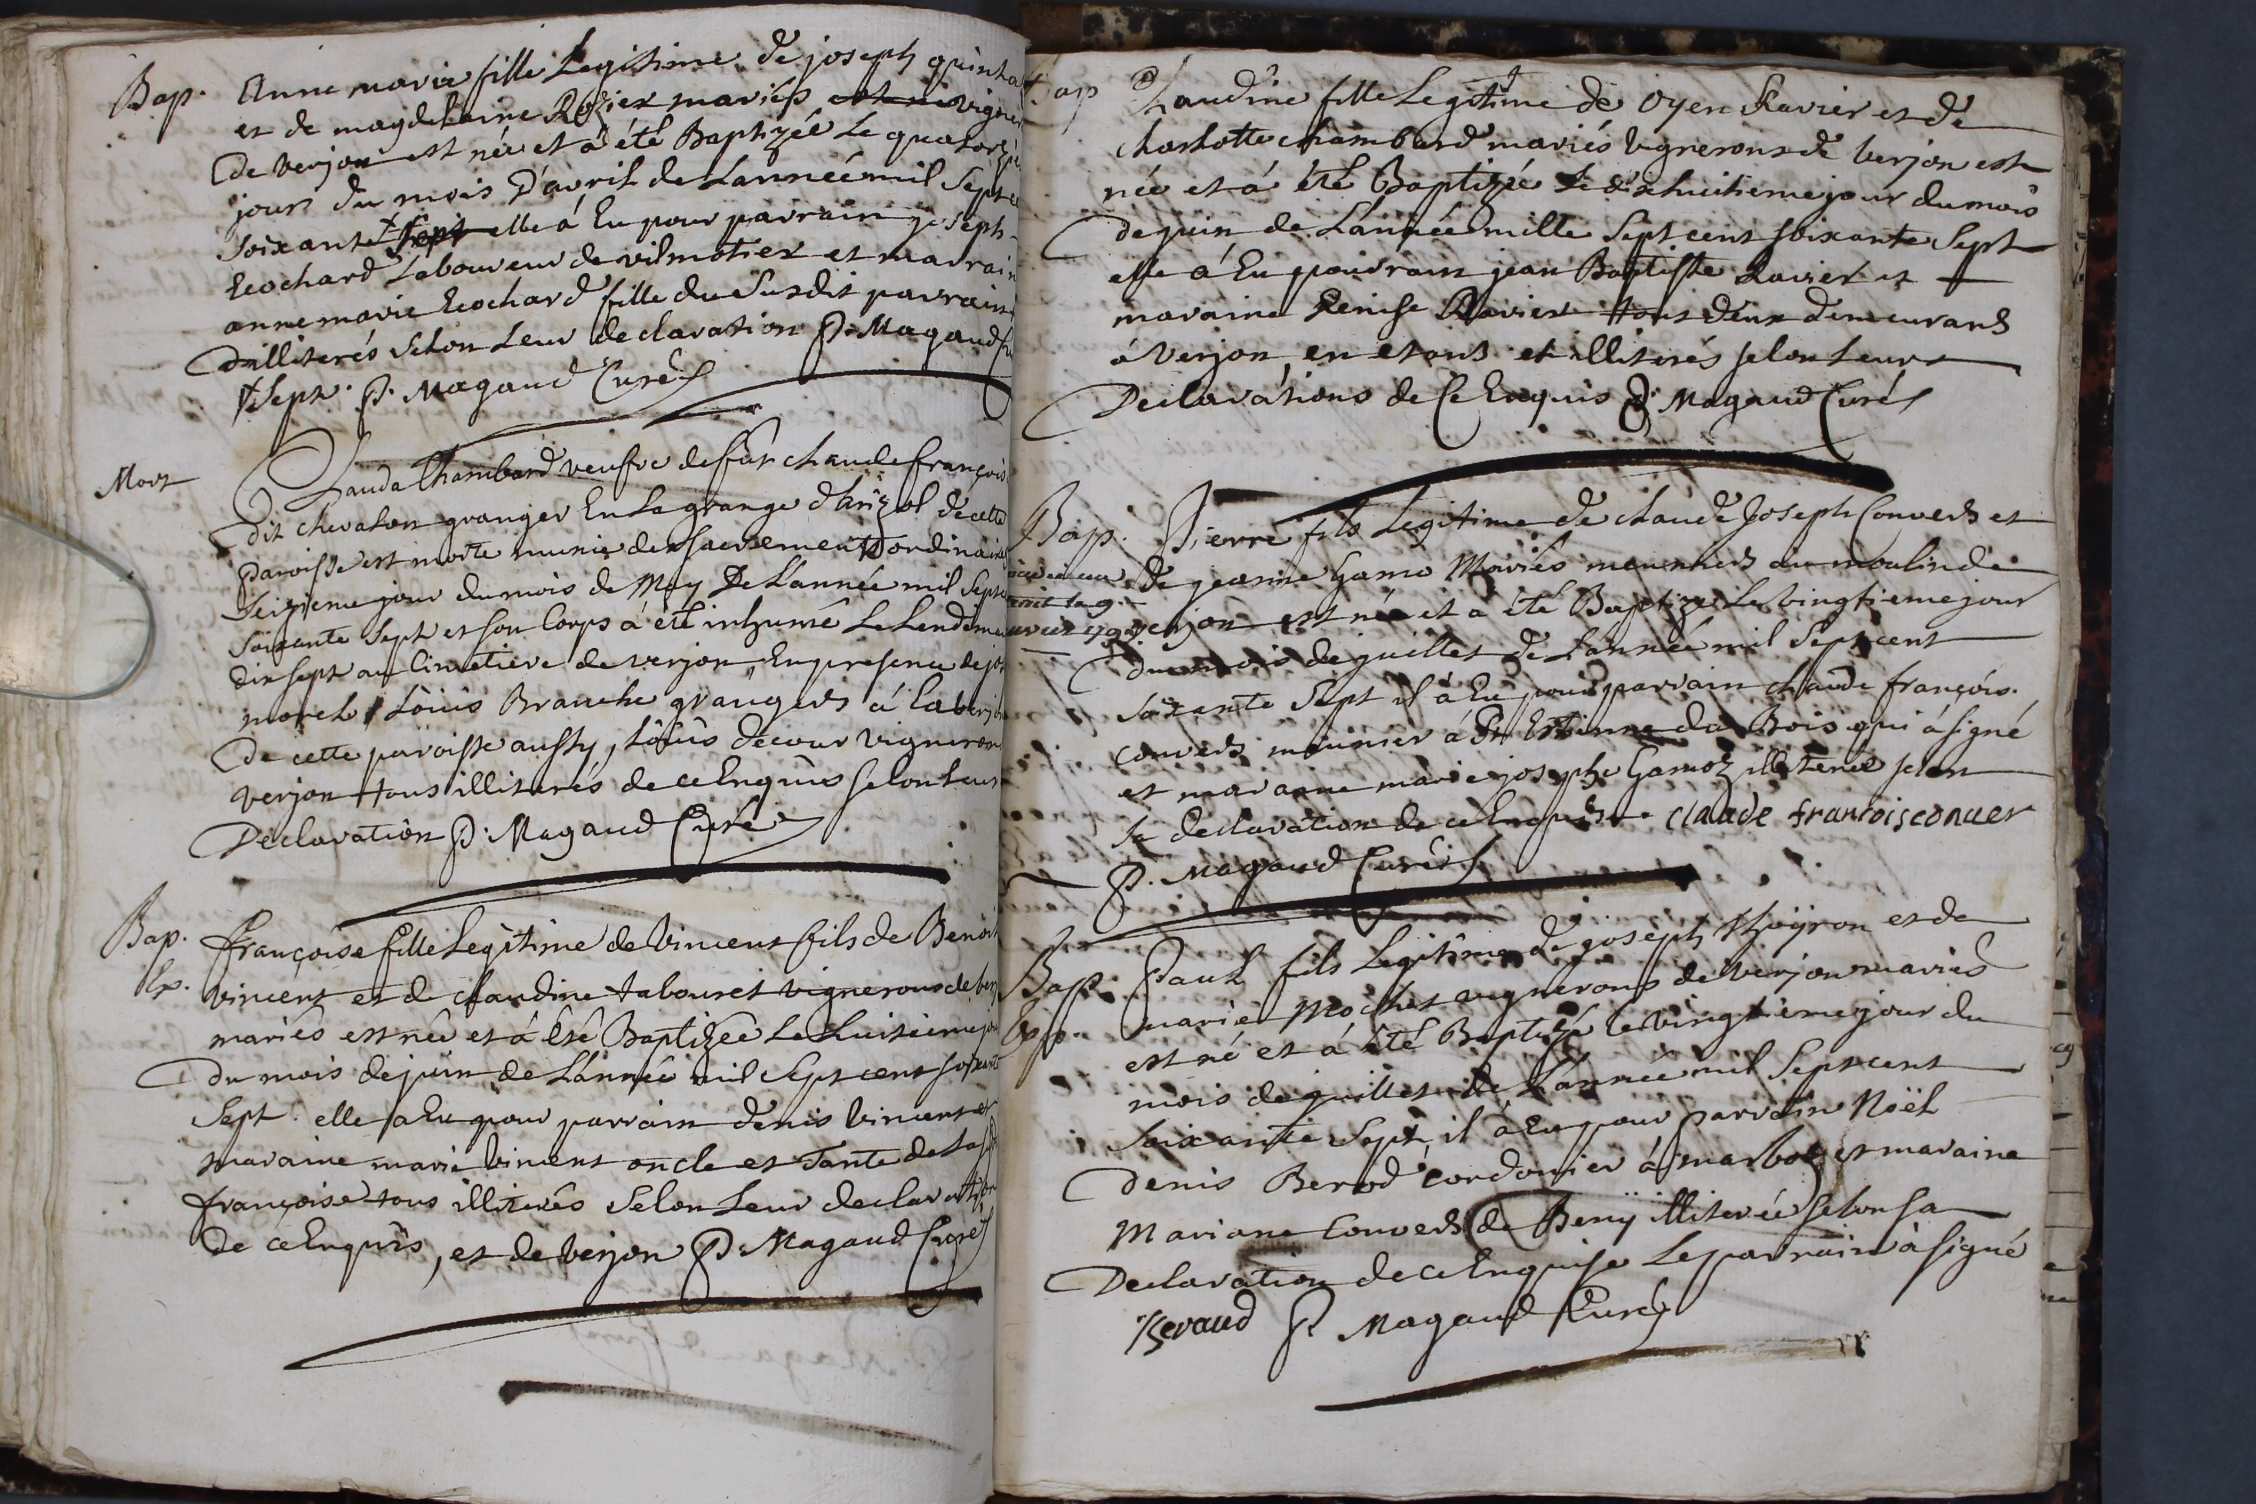 Bap. Anne marie fille Legitime de joseph quinta
et de magdelaine Rozier mariés vigner
de verjon est née et á été Baptizée Le quatorziè
jour du mois D'avril de Lannée mil Septce
soixante elle á Eu pour parrain joseph
Ecochard Laboureur de vilmotier et marrain
anne marie Ecochard fille du Susdit parrain
illiterés selon Leur declaration P. Magaud
Sept. P. Magaud Curé
Mort Clauda Chambard veufve de fût claude françois
dit chevalon granger En La grange de cette
paroisse est morte munie des sacrements ordinaires
Seizieme jour du mois de May De L'année mil Septce
soixante Sept et son Corps á été inhumé Le Lendemain
dix sept au Cimetiere de verjon, En presence de jos
morel, Loüis Branche grangers á
de cette paroisse aussy, Loüis decour vigneron
verjon tous illiterés de ce Enquis selon Leur
Declaration P. Magaud Curé
Bap. françoise fille Legitime de Vincent fils de Benoit
Ex. vincent et de claudine tabouret vignerons de verj
mariés est née et á êté Baptizée Le huitieme jou
du mois de juin de Lannée mil Sept cent soixante
Sept. elle a Eu pour parrain denis Vincent et
maraine marie Vincent oncle et Tante de La
françoise tous illiterés Selon Leur declaration
de ce Enquis, et de verjon P. Magaud Curé
Bap Claudine fille Legitime de Oyen Ravier et de
charlotte chambard mariés vignerons de verjon est
née et á été Baptizée Le dix huitieme jour du mois
de juin de L'année mille Sept cent soixante Sept
elle á Eu jean Baptiste Ravier et
maraine Denise Ravier tous deux demeurans
á verjon, en etans et illiterés selon Leurs
Declarations de Ce Enquis P. Magaud Curé
Bap. Pierre fils Legitime de claude Joseph Convers et
de jeanne Gamo Mariés meuniers au moulin de
verjon est né et a été Baptizé Le vingtieme jour
du mois de juillet de Lannée mil Sept cent
soixante Sept il á Eu pour parrain claude françois
convers meunier á St Estienne du Bois qui á signé
et maraine marie josephe Gamoz illiterée selon
sa declaration de ce Enquise claude francois conver
P. Magaud Curé
Bap. Paul fils Legitime de joseph et de
marie Mochet vignerons de verjon mariés
est né et á été Baptizé le vingtieme jour du
mois de juillet de Lannée mil Sept cent
soixante Sept, il á Eu pour parrain Noël
denis Berod cordonier á marboz et maraine
Mariane Convers de Beny illiterée selon sa
Declaration de ce Enquise Le parrain á signé
Beraud P. Magaud Curé